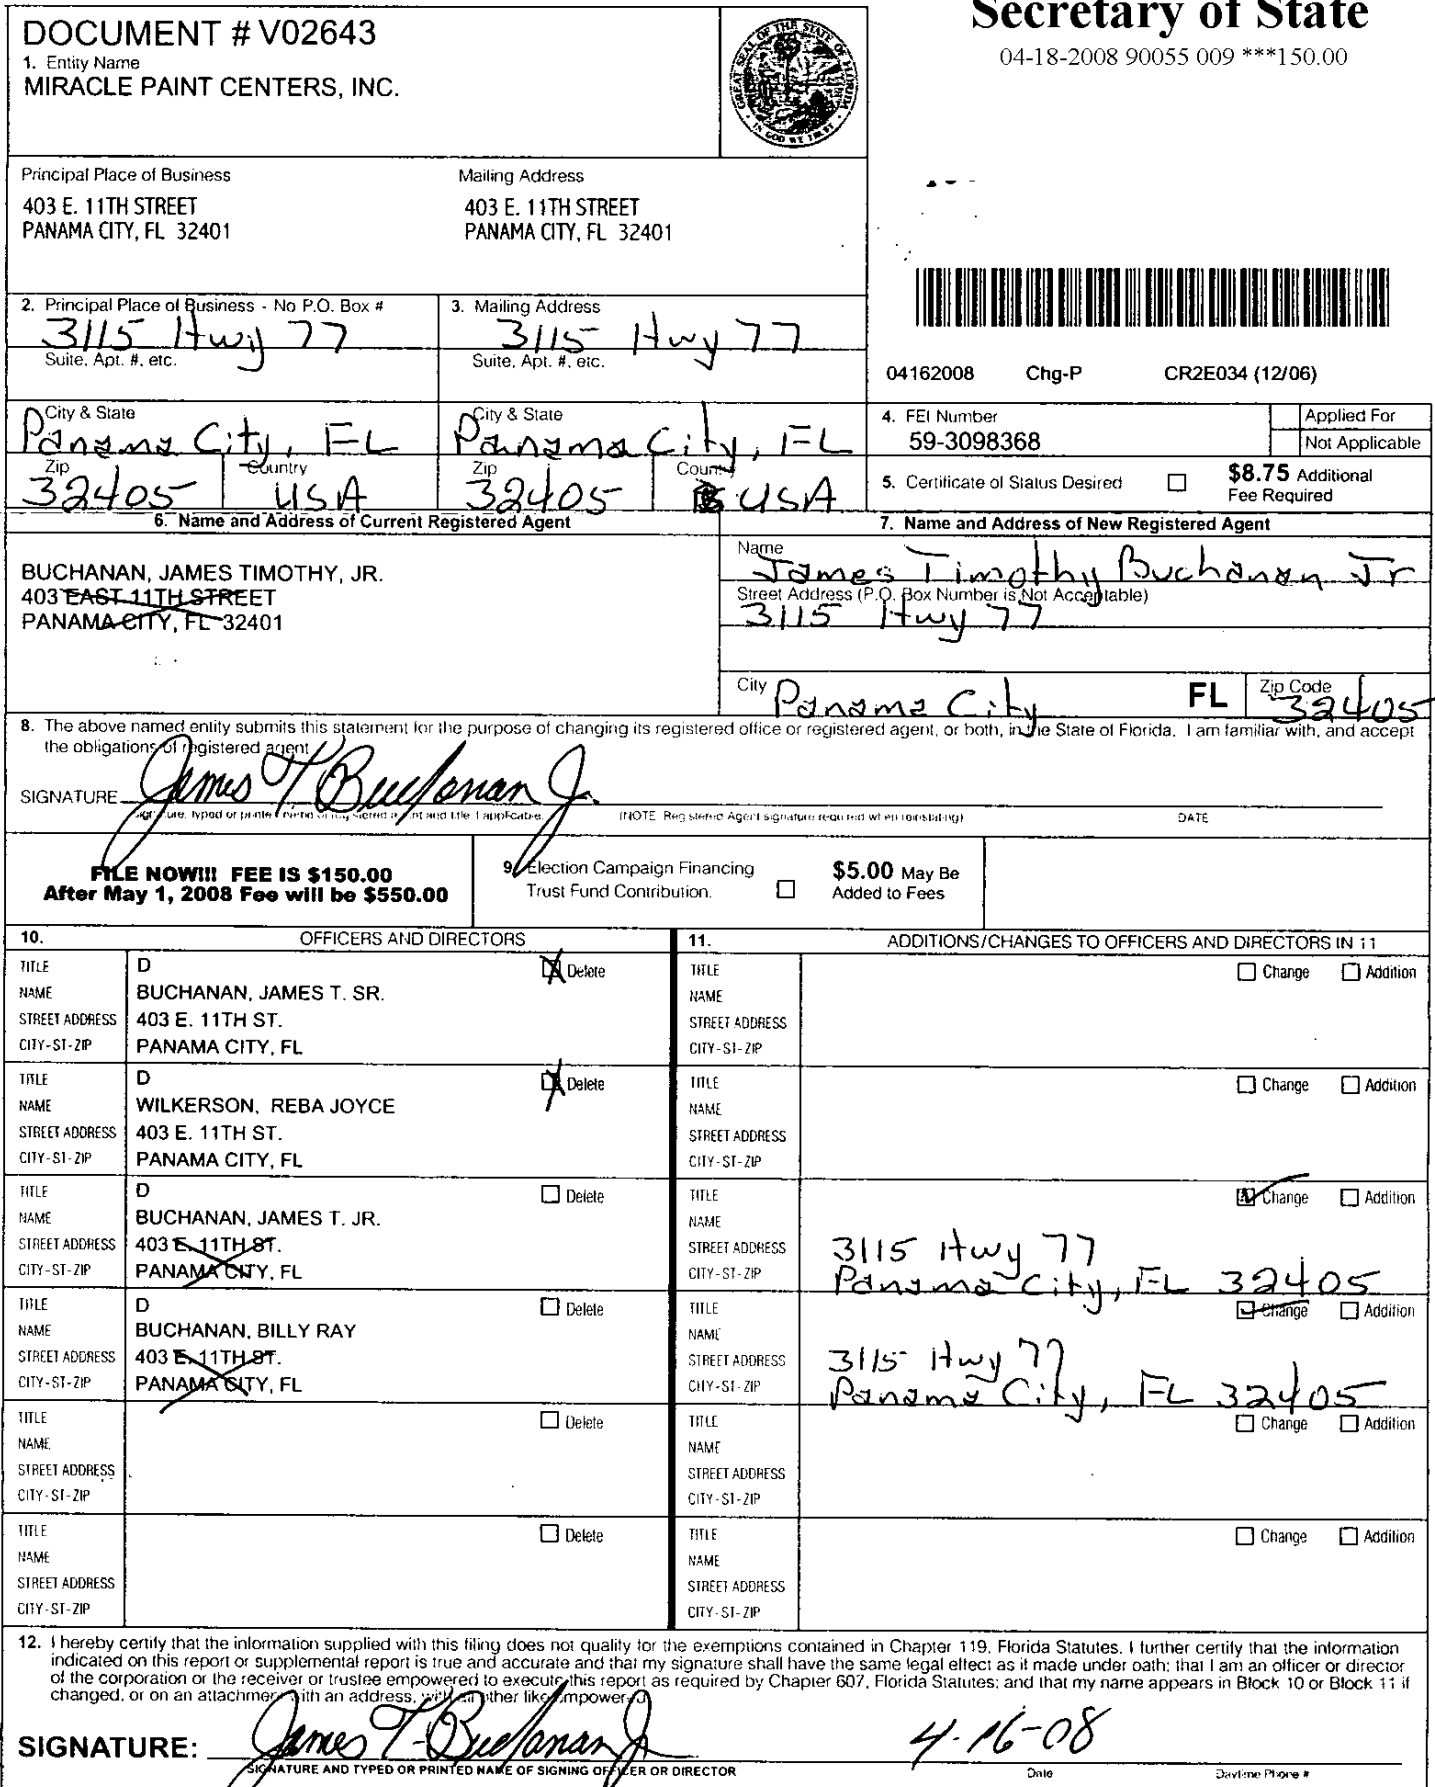 Secretary of State
04-18-2008 90055 009 ***150.00
DOCUMENT # V02643
1. Entity Name
MIRACLE PAINT CENTERS, INC.
GREAT SEAL OF THE STATE OF FLORIDA
IN GOD WE TRUST
Principal Place of Business
403 E. 11TH STREET
PANAMA CITY, FL 32401
Mailing Address
403 E. 11TH STREET
PANAMA CITY, FL 32401
2. Principal Place of Business - No P.O. Box #
3115 Hwy 77
Suite, Apt. #, etc.
3. Mailing Address
3115 Hwy 77
Suite, Apt. #, etc.
04162008 Chg-P CR2E034 (12/06)
City & State
Panama City, FL
City & State
Panama City, FL
Zip
32405
Country
USA
Zip
32405
Country
USA
4. FEI Number
59-3098368
Applied For
Not Applicable
5. Certificate of Status Desired
$8.75 Additional
Fee Required
6. Name and Address of Current Registered Agent
BUCHANAN, JAMES TIMOTHY, JR.
403 EAST 11TH STREET
PANAMA CITY, FL 32401
7. Name and Address of New Registered Agent
Name
James Timothy Buchanan Jr
Street Address (P.O. Box Number is Not Acceptable)
3115 Hwy 77
City
Panama City
FL
Zip Code
32405
8. The above named entity submits this statement for the purpose of changing its registered office or registered agent, or both, in the State of Florida. I am familiar with, and accept
the obligations of registered agent
SIGNATURE James T. Buchanan Jr.
Signature, typed or printed name of registered agent and title if applicable.
(NOTE Registered Agent signature required when reinstating)
DATE
FILE NOW!!! FEE IS $150.00
After May 1, 2008 Fee will be $550.00
9. Election Campaign Financing
Trust Fund Contribution.
$5.00 May Be
Added to Fees
10. OFFICERS AND DIRECTORS
TITLE D Delete
NAME BUCHANAN, JAMES T. SR.
STREET ADDRESS 403 E. 11TH ST.
CITY-ST-ZIP PANAMA CITY, FL
TITLE D Delete
NAME WILKERSON, REBA JOYCE
STREET ADDRESS 403 E. 11TH ST.
CITY-ST-ZIP PANAMA CITY, FL
TITLE D Delete
NAME BUCHANAN, JAMES T. JR.
STREET ADDRESS 403 E. 11TH ST.
CITY-ST-ZIP PANAMA CITY, FL
TITLE D Delete
NAME BUCHANAN, BILLY RAY
STREET ADDRESS 403 E. 11TH ST.
CITY-ST-ZIP PANAMA CITY, FL
TITLE Delete
NAME
STREET ADDRESS
CITY-ST-ZIP
TITLE Delete
NAME
STREET ADDRESS
CITY-ST-ZIP
11. ADDITIONS/CHANGES TO OFFICERS AND DIRECTORS IN 11
TITLE Change Addition
NAME
STREET ADDRESS
CITY-ST-ZIP
TITLE Change Addition
NAME
STREET ADDRESS
CITY-ST-ZIP
TITLE Change Addition
NAME
STREET ADDRESS 3115 Hwy 77
CITY-ST-ZIP Panama City, FL 32405
TITLE Change Addition
NAME
STREET ADDRESS 3115 Hwy 77
CITY-ST-ZIP Panama City, FL 32405
TITLE Change Addition
NAME
STREET ADDRESS
CITY-ST-ZIP
TITLE Change Addition
NAME
STREET ADDRESS
CITY-ST-ZIP
12. I hereby certify that the information supplied with this filing does not qualify for the exemptions contained in Chapter 119, Florida Statutes. I further certify that the information
indicated on this report or supplemental report is true and accurate and that my signature shall have the same legal effect as if made under oath; that I am an officer or director
of the corporation or the receiver or trustee empowered to execute this report as required by Chapter 607, Florida Statutes; and that my name appears in Block 10 or Block 11 if
changed, or on an attachment with an address, with all other like empowered
SIGNATURE: James T. Buchanan Jr 4-16-08
SIGNATURE AND TYPED OR PRINTED NAME OF SIGNING OFFICER OR DIRECTOR
Date
Daytime Phone #